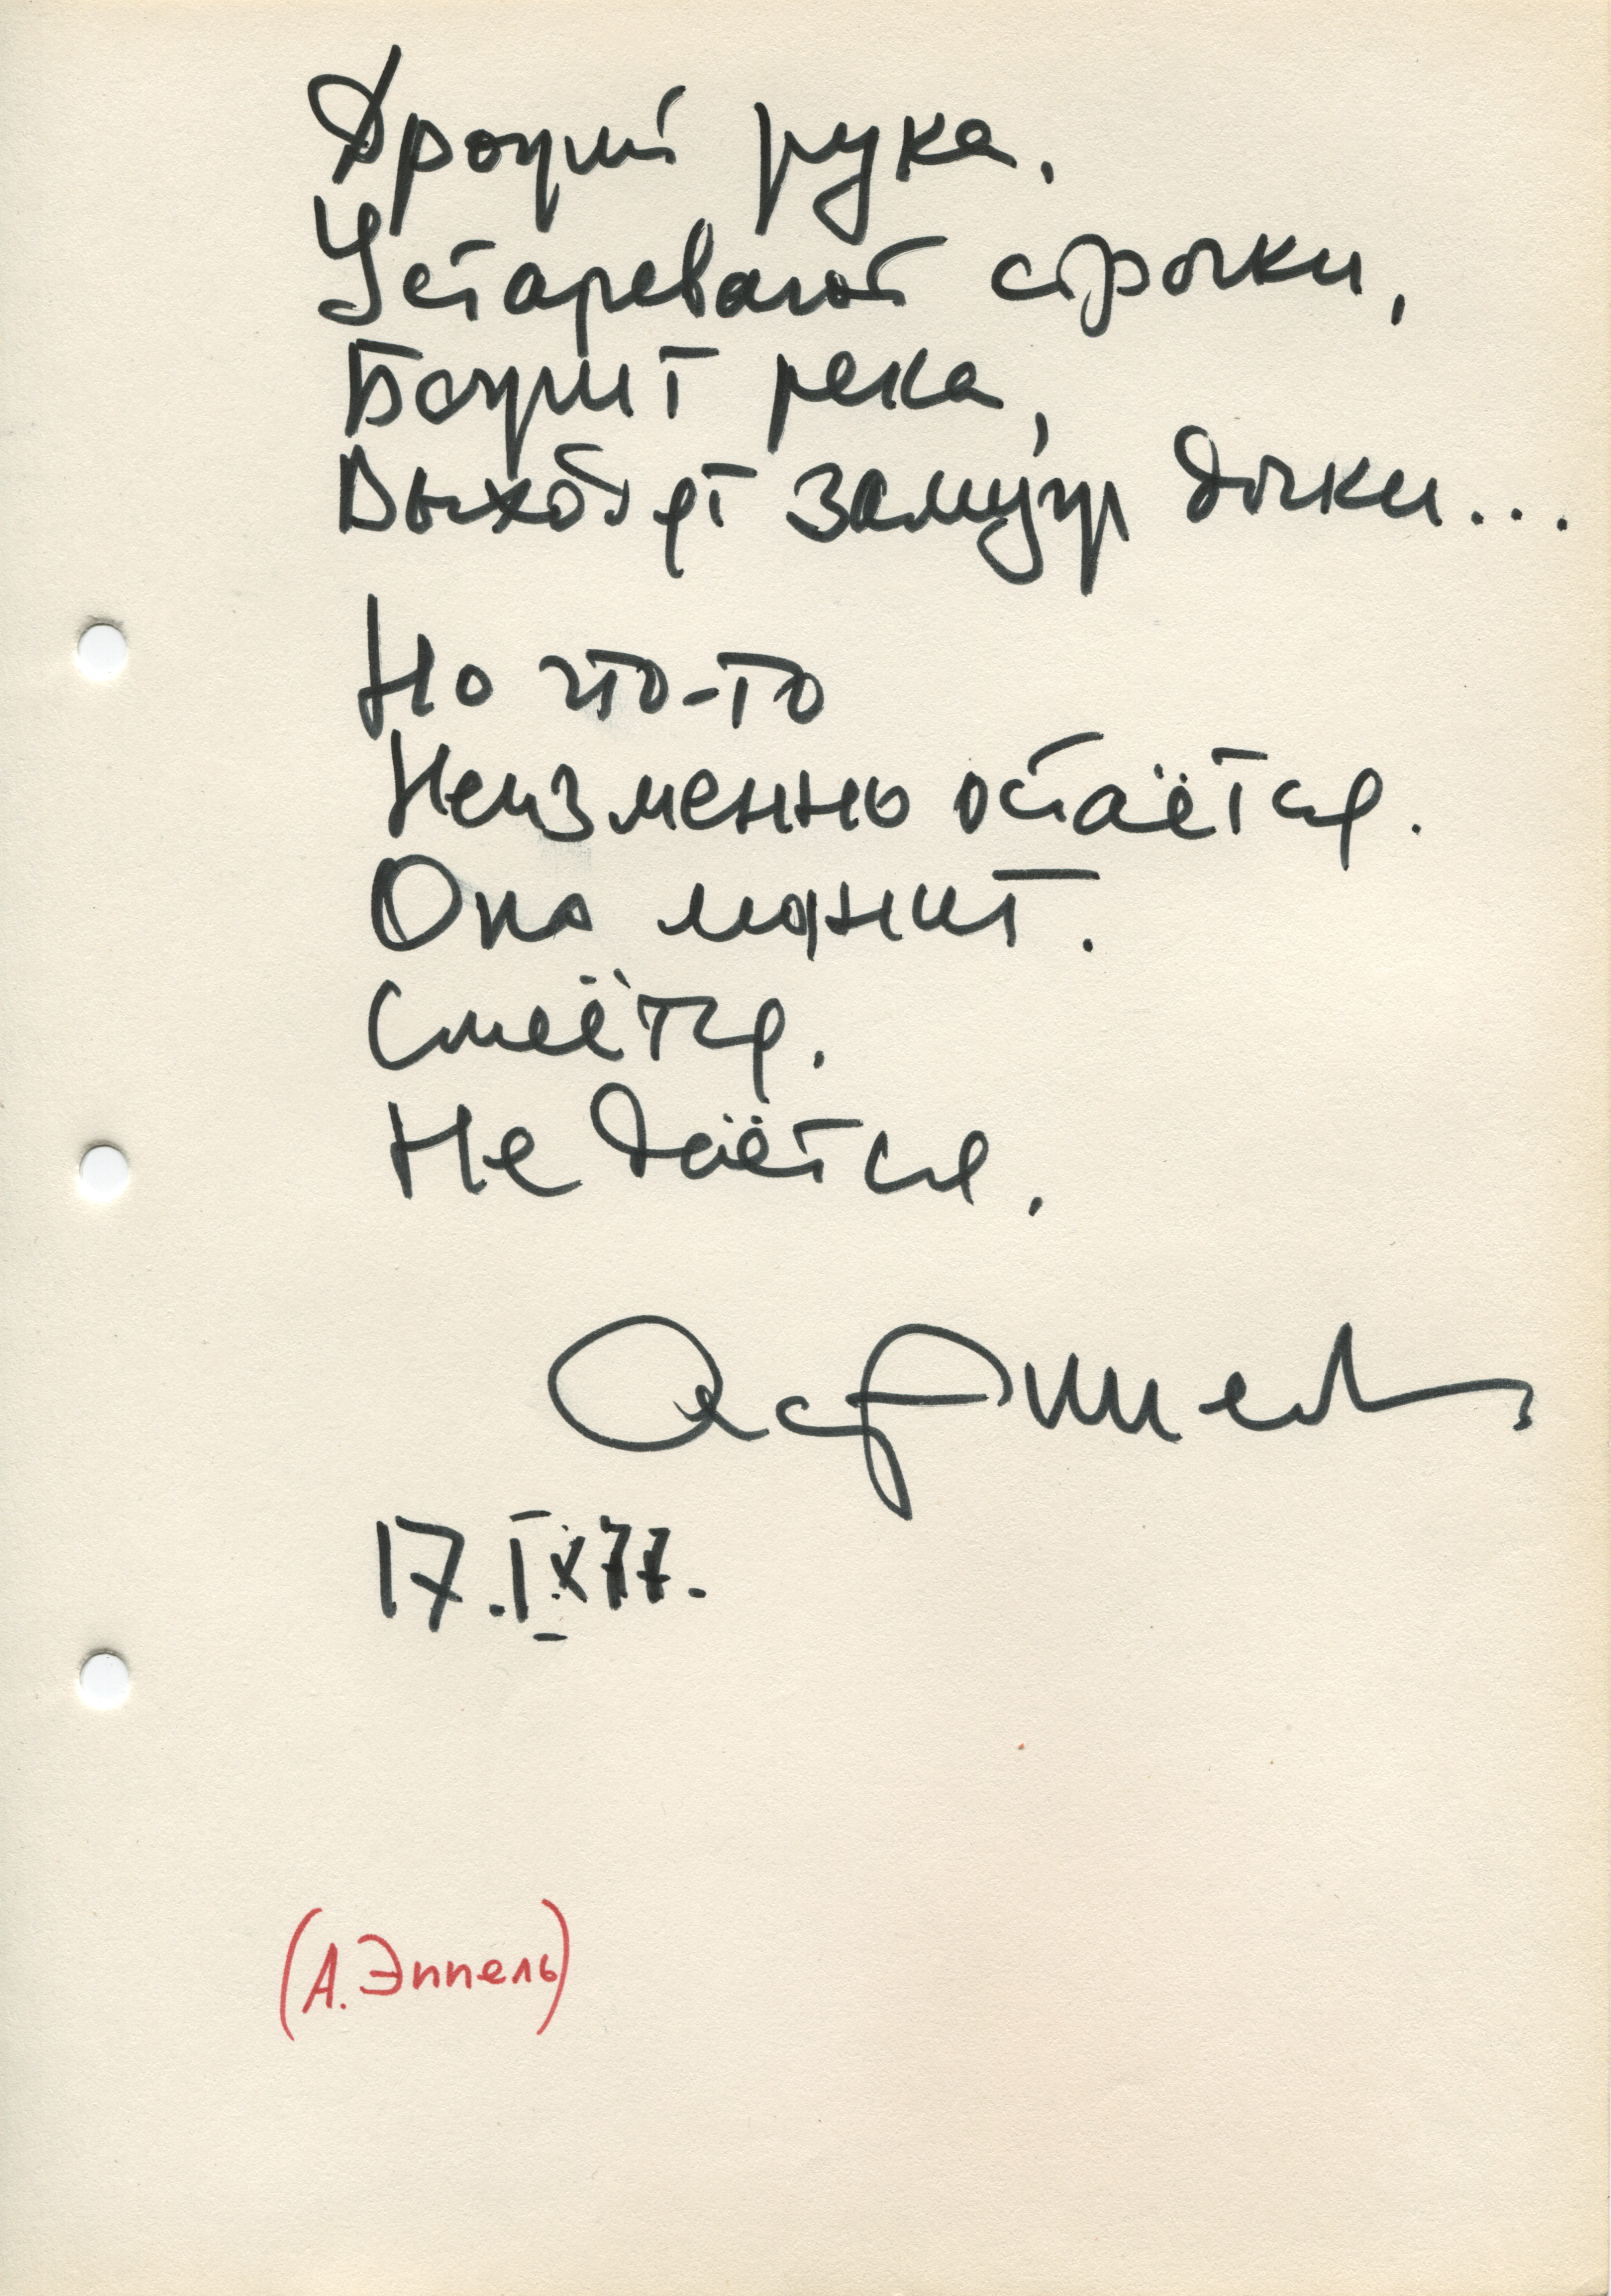 Дрожит рука,
Устаревают строчки,
Бежит река,
Выходят замуж дочки...
Но что-то
Неизменно остаётся.
Оно манит.
Смеётся.
Не даётся.
17.IX 77.
(А. Эппель)